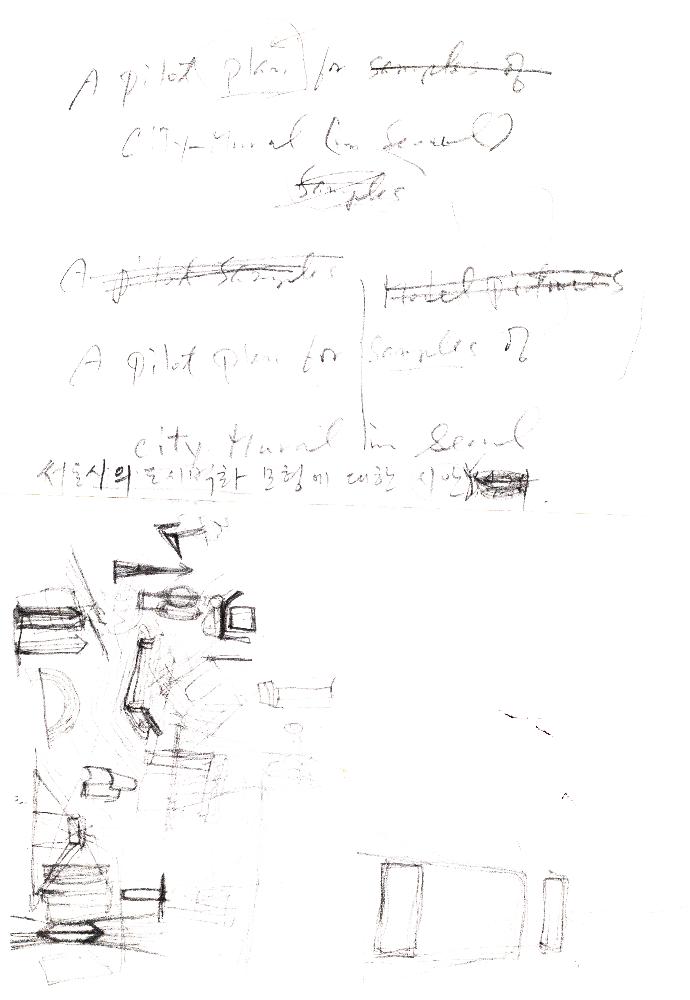 A pilot plan for samples of
City-Mural (in Seoul)
Samples
A pilot Samples
Hotel pictures
A pilot plan for Samples of
city Mural in Seoul
서울시의 도시벽화 모형에 대한 시안